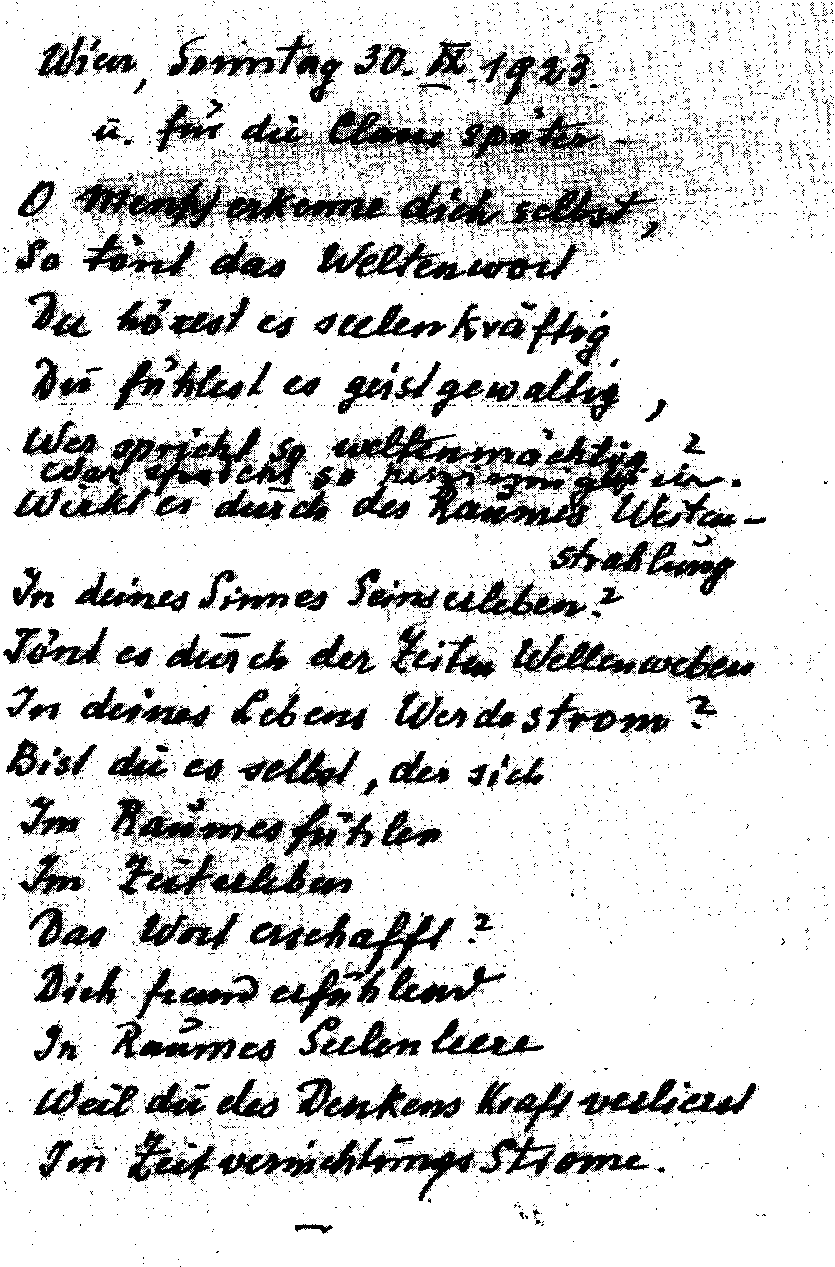 Wien, Sonntag 30. IX. 1923
u. für die Classe später
O Mensch erkenne dich selbst,
So tönt das Weltenwort
Du hörest es seelenkräftig
Du fühlest es geistgewaltig,
Wer spricht so weltenmächtig?
Wer spricht so herzinniglich
Wirkt es durch des Raumes Weiten-
strahlung
In deines Sinnes Seinserleben?
Tönt es durch der Zeiten Wellenweben
In deines Lebens Werdestrom?
Bist du es selbst, der sich
Im Raumesfühlen
Im Zeiterleben
Das Wort erschafft?
Dich fremd erfühlend
In Raumes Seelenleere
Weil du des Denkens Kraft verlierst
Im Zeitvernichtungs Strome.